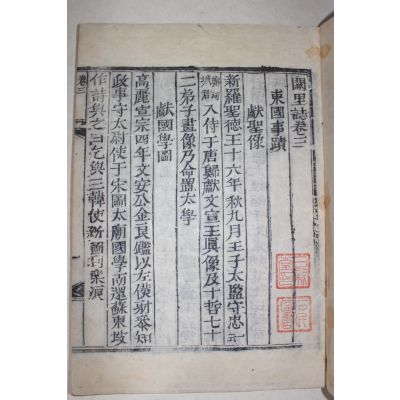 闕里誌卷三
東國事蹟
獻聖像
新羅聖德王十六年秋九月王子太監守忠
入侍于唐歸獻文宣王眞像及十哲七十
二弟子畫像乃命置太學
獻國學圖
高麗宣宗四年文安公金良鑑以左僕射參知
政事守太尉使于宋圖太廟國學而還蘇東坡
作詩與之曰乞與三韓使新圖到樂浪
卷三